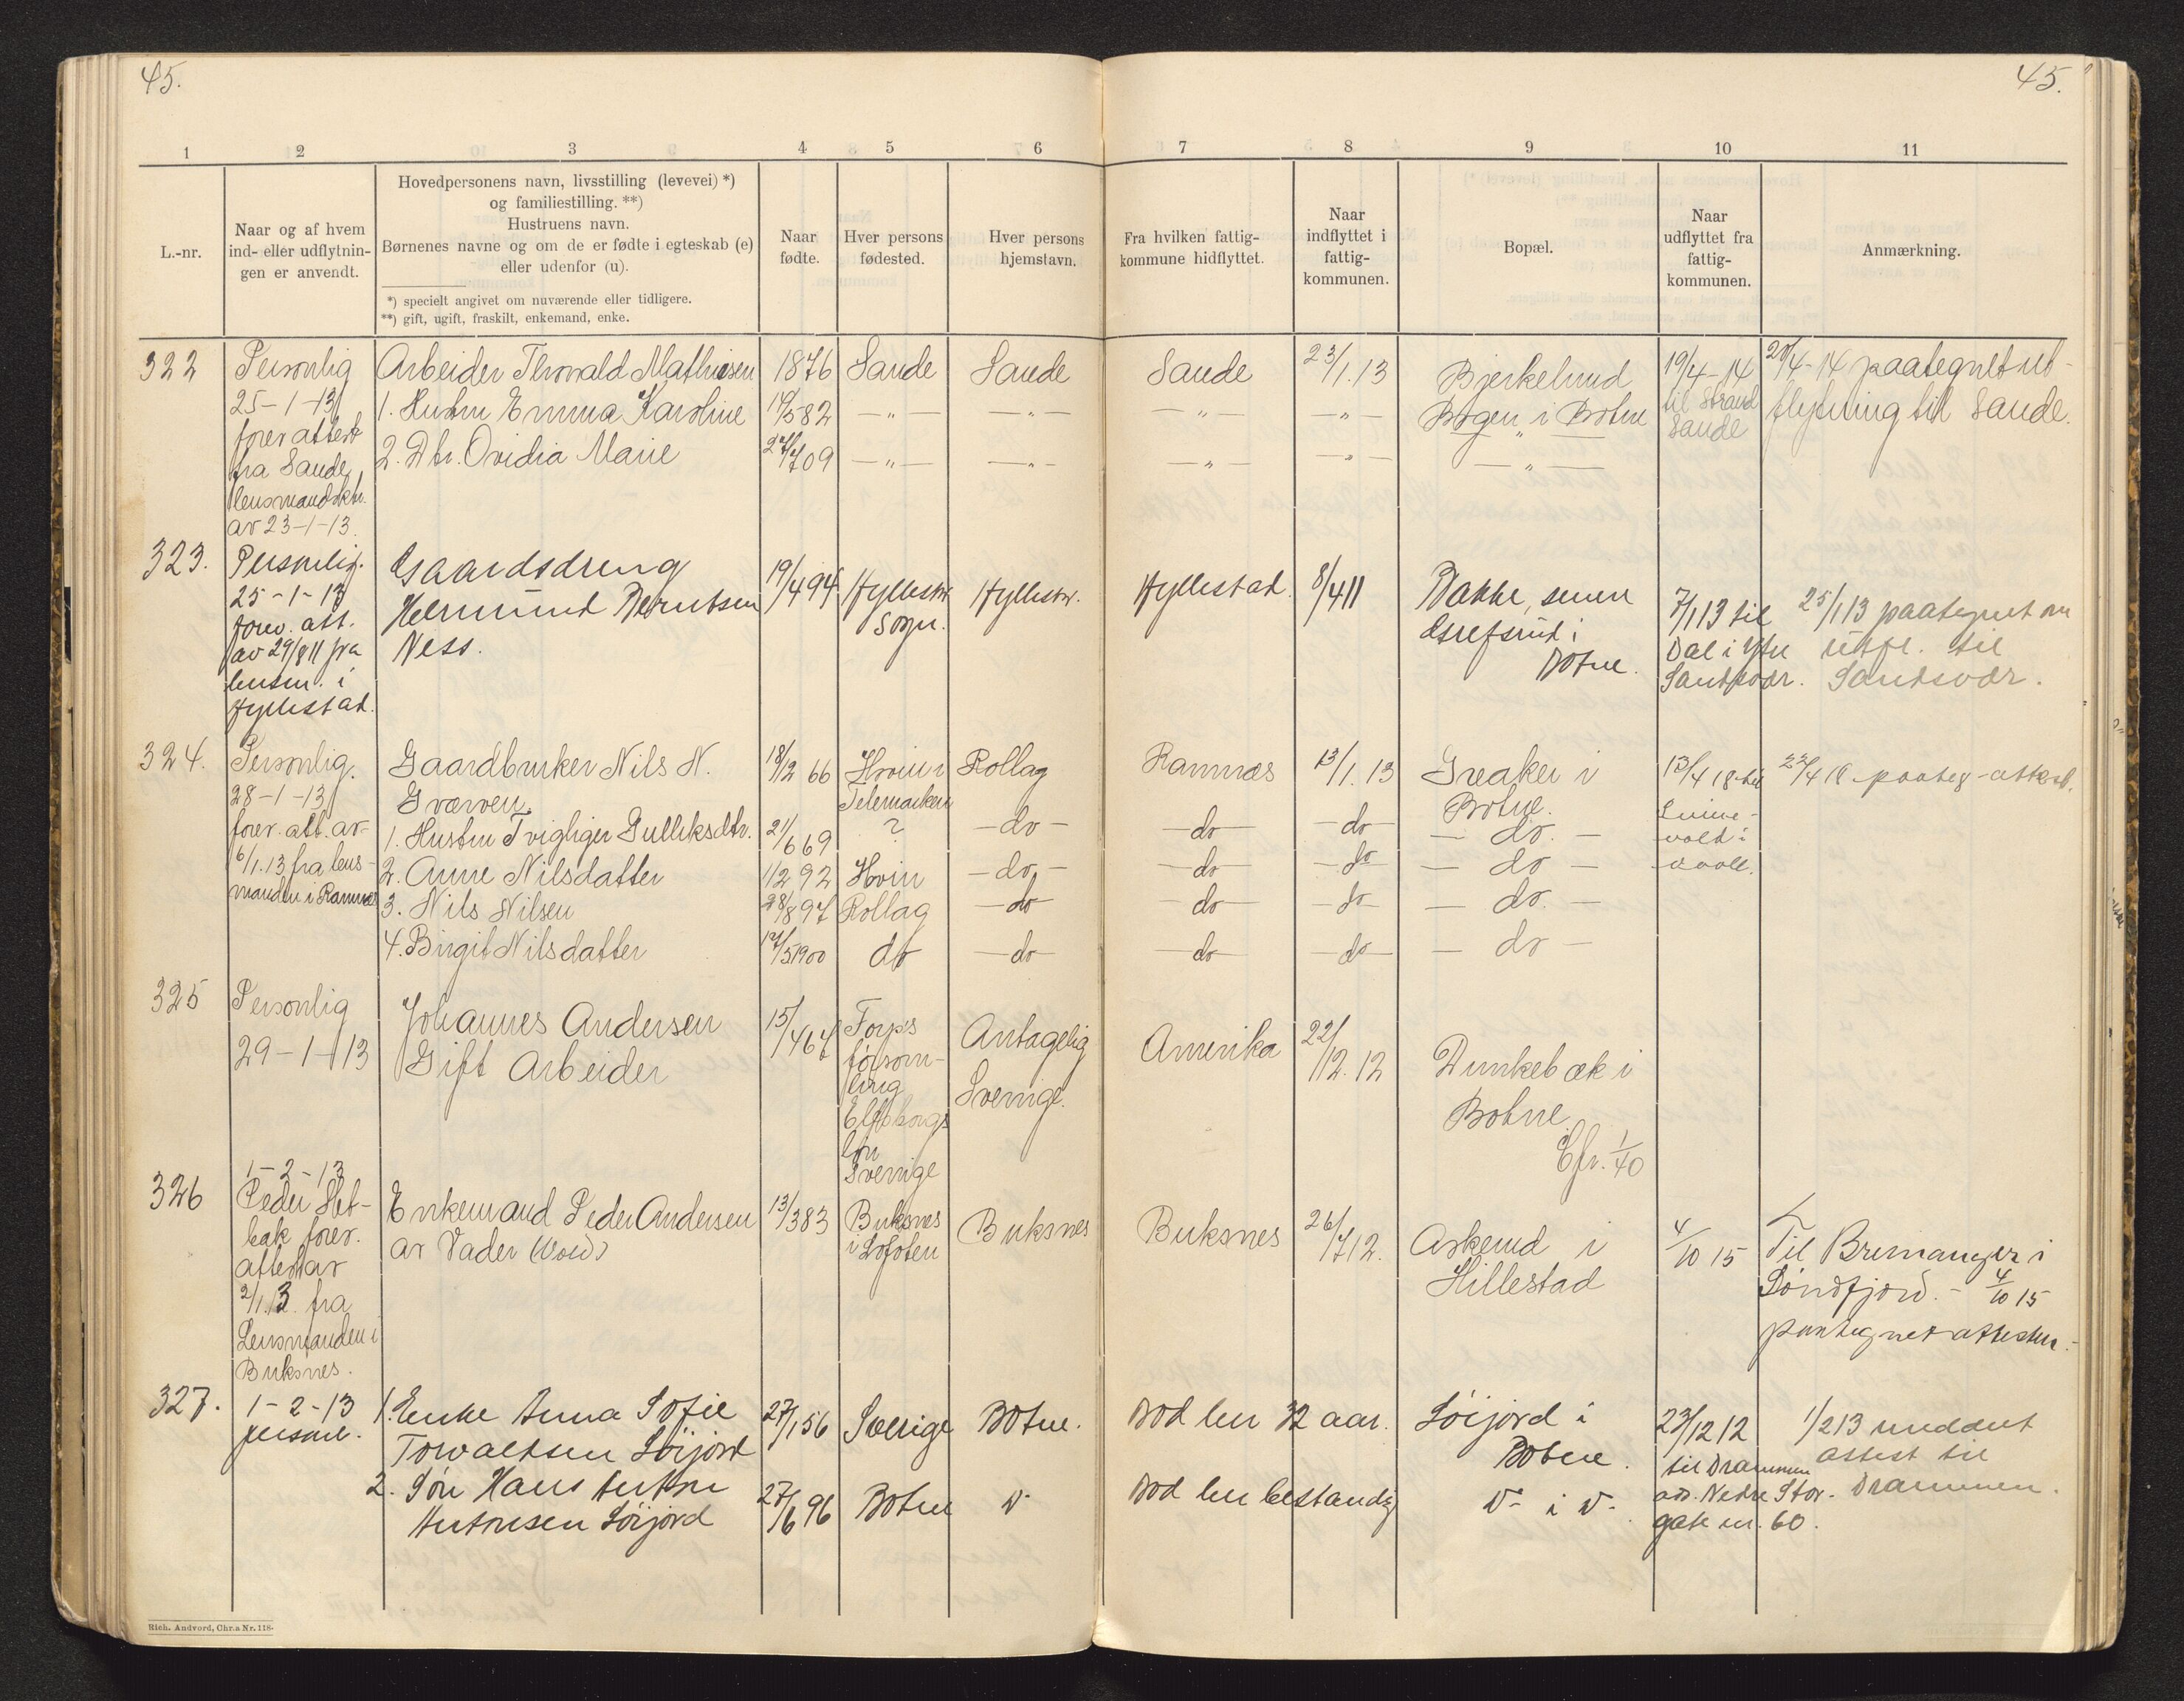 45.
45.
1 2 3 4 5 6 7 8 9 10 11
L.-nr.
Naar og af hvem
ind- eller udflytnin-
gen er anvendt.
Hovedpersonens navn, livsstilling (levevei) *)
og familiestilling. **)
Hustruens navn.
Børnenes navne og om de er fødte i egteskab (e)
eller udenfor (u).
*) specielt angivet om nuværende eller tidligere.
**) gift, ugift, fraskilt, enkemand, enke.
Naar
fødte.
Hver persons
fødested.
Hver persons
hjemstavn.
Fra hvilken fattig-
kommune hidflyttet.
Naar
indflyttet i
fattig-
kommunen.
Bopæl.
Naar
udflyttet fra
fattig-
kommunen.
Anmærkning.
322
Personlig
25-1-13
forev attest
fra Sande
lensmandsktr.
av 23-1-13.
Arbeider Thorvald Mathisen
1876
Sande
Sande
Sande
23/1.13
Bjerkelund
Bogen i Botne
19/4-14
til Strand
Sande
20/4-14 paategnet ut-
flytning til Sande.
1. Hustru Emma Karoline
19/5 82
-"- -"- -"- -"- -"-
2. Dtr. Ovidia Marie
27/7 09
-"- -"- -"- -"- -"-
323.
Personlig.
25-1-13
forev. att.
av 29/8 11 fra
lensm. i
Hyllestad.
Gaardsdreng
Helmund Berntsen
Ness.
19/4 94
Hyllestad
Sogn.
Hyllestr.
Hyllestad.
8/4 11
Bakke, senere
Grefsrud i
Botne.
7/1 13 til
Dal i Ytre
Santsvær.
25/1 13 paategnet om
utfl. til
Santsvær.
324.
Personlig.
28-1-13
forev. att. av
6/1.13 fra lens-
manden i Ramnes
Gaardbruker Nils N.
Gværven.
18/2 66
Hovin i
Telemarken
Rollag
Ramnæs
13/1.13
Greaker i
Botne.
13/4 18 til
22/4 18 paateg-attest.
1. Hustru Tvigliger Gulliksdtr.
21/6 69
?
-do- -do- -do- -do.-
2. Anne Nilsdatter
1/2 92
Hovin
-do- -do- -do- -do-
3. Nils Nilsen
28/8 97
Rollag
-do- -do- -do- -do.-
4. Birgit Nilsdatter
17/5 1900
do
-do- -do- -do- -do-
325
Personlig
29-1-13
Johannes Andersen
Gift Arbeider
15/4 67
Torps
førsom-
ling
Elfsborgs
län
Sverrige
Antagelig
Sverrige.
Amerika
22/12.12
Dunkebæk i
Botne
Cfr. 1/40
326
1-2-13
Peder Het-
bak forev.
attest av
2/1.13. fra
Lensmanden i
Buksnes.
Enkemand Peder Andersen
av Vader (Vold)
13/3 83
Buksnes
i Lofoten
Buksnes
Buksnes
26/7 12.
Askerud i
Hillestad
4/10 15
Til Bremanger i
Søndfjord. - 4/10 15
paategnet attesten.-
327.
1-2-13
personl.
1. Enke Anna Sofie
Torvaldsen Løijord
27/1 56
Sverige
Botne.
Bod her 32 aar.
Løijord i
Botne.
23/12 12
til Drammen
adr. Nedre Stor-
gate nr. 60.
1/2 13 meddelt
attest til
Drammen.
2. Søn Hans Anton
Antonsen Løijord
27/6 96
Botne
do
Bod her bestandig
do- i do-
Rich. Andvord, Chr.a Nr. 118.